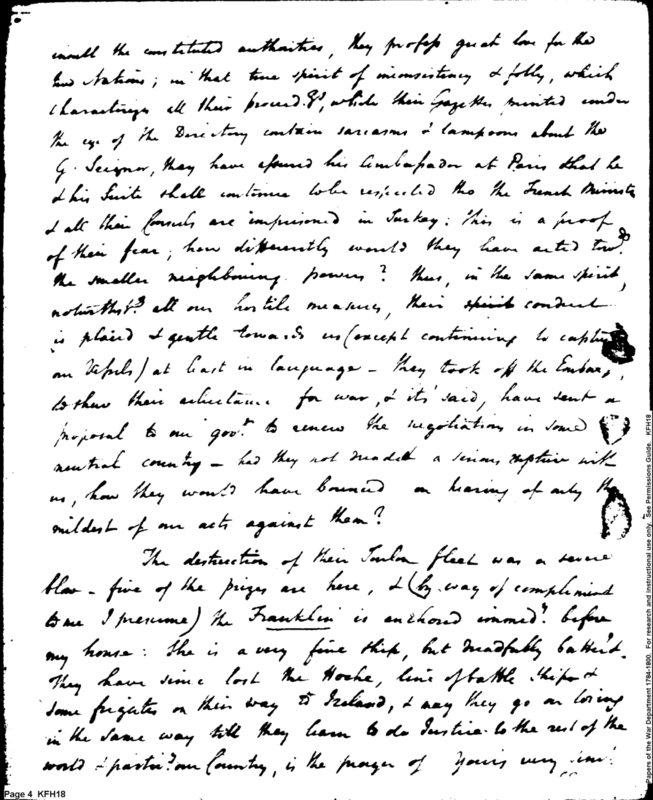 insult the constituted authorities, they profess great love for the
two Nations; in that true spirit of inconsistency & folly, which
characterizes all their proceedgs, while their Gazettes printed under
the eye of the Directory contain sarcasms & lampoons about the
G. Seignor, they have assured his Ambassador at Paris that he
& his Suite shall continue to be respected tho the French Minister
& all their Consuls are imprisoned in Turkey: This is a proof
of their fear; how differently would they have acted towds
the smaller neighbouring powers? thus, in the same spirit,
notwithstg all our hostile measures, their spirit conduct
is placid & gentle towards us (except continuing to capture
our Vessels) at least in language - they took off the Embargo,
to shew their reluctance for war, & it's said, have sent a
proposal to our govt to renew the negotiations in some
neutral country - had they not dreaded a serious rupture with
us, how they would have bounced on hearing of only the
mildest of our acts against them?
The destruction of their Toulon fleet was a severe
blow - five of the prizes are here, & (by way of compliment
to me I presume) the Franklin is anchored immedy before
my house: She is a very fine ship, but dreadfully batter'd.
They have since lost the Hoche, line of battle ship &
some frigates on their way to Ireland, & may they go on losing
in the same way till they learn to do Justice to the rest of the
world & particy our Country, is the prayer of yours very
Page 4 KFH18
Papers of the War Department 1784-1800. For research and instructional use only. See Permissions Guide. KFH18